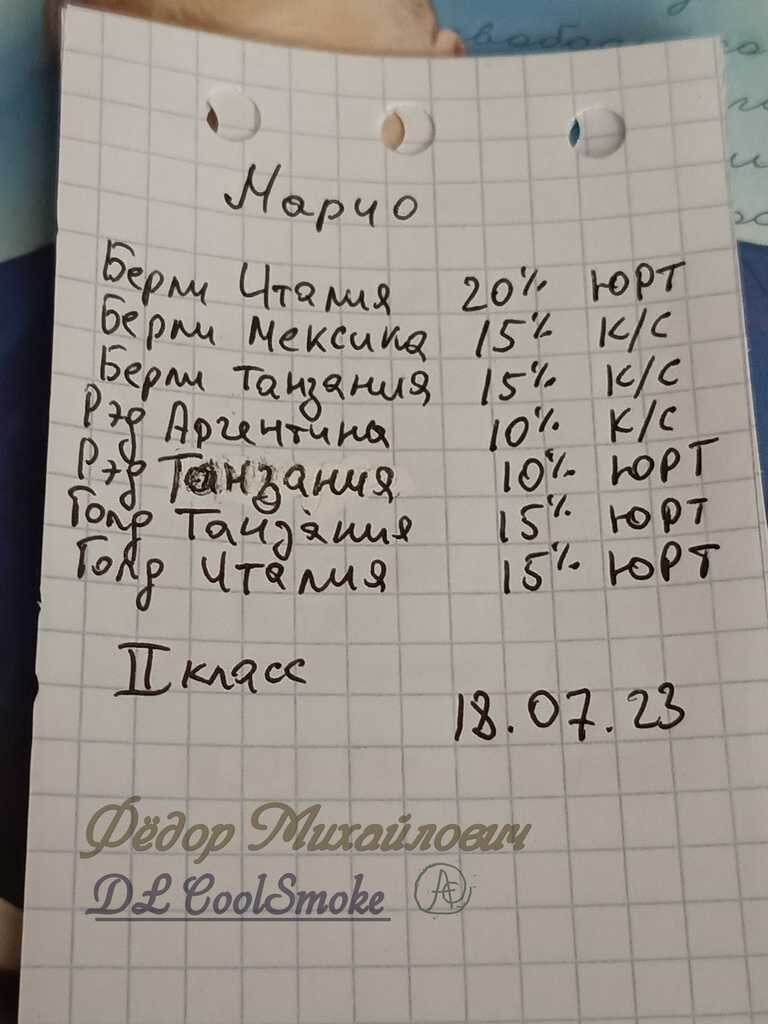 Марио
Берли Италия 20% ЮРТ
Берли Мексика 15% К/С
Берли Танзания 15% К/С
Рэд Аргентина 10% К/С
Рэд Танзания 10% ЮРТ
Голд Танзания 15% ЮРТ
Голд Италия 15% ЮРТ
II класс
18.07.23
Фёдор Михайлович
DL CoolSmoke